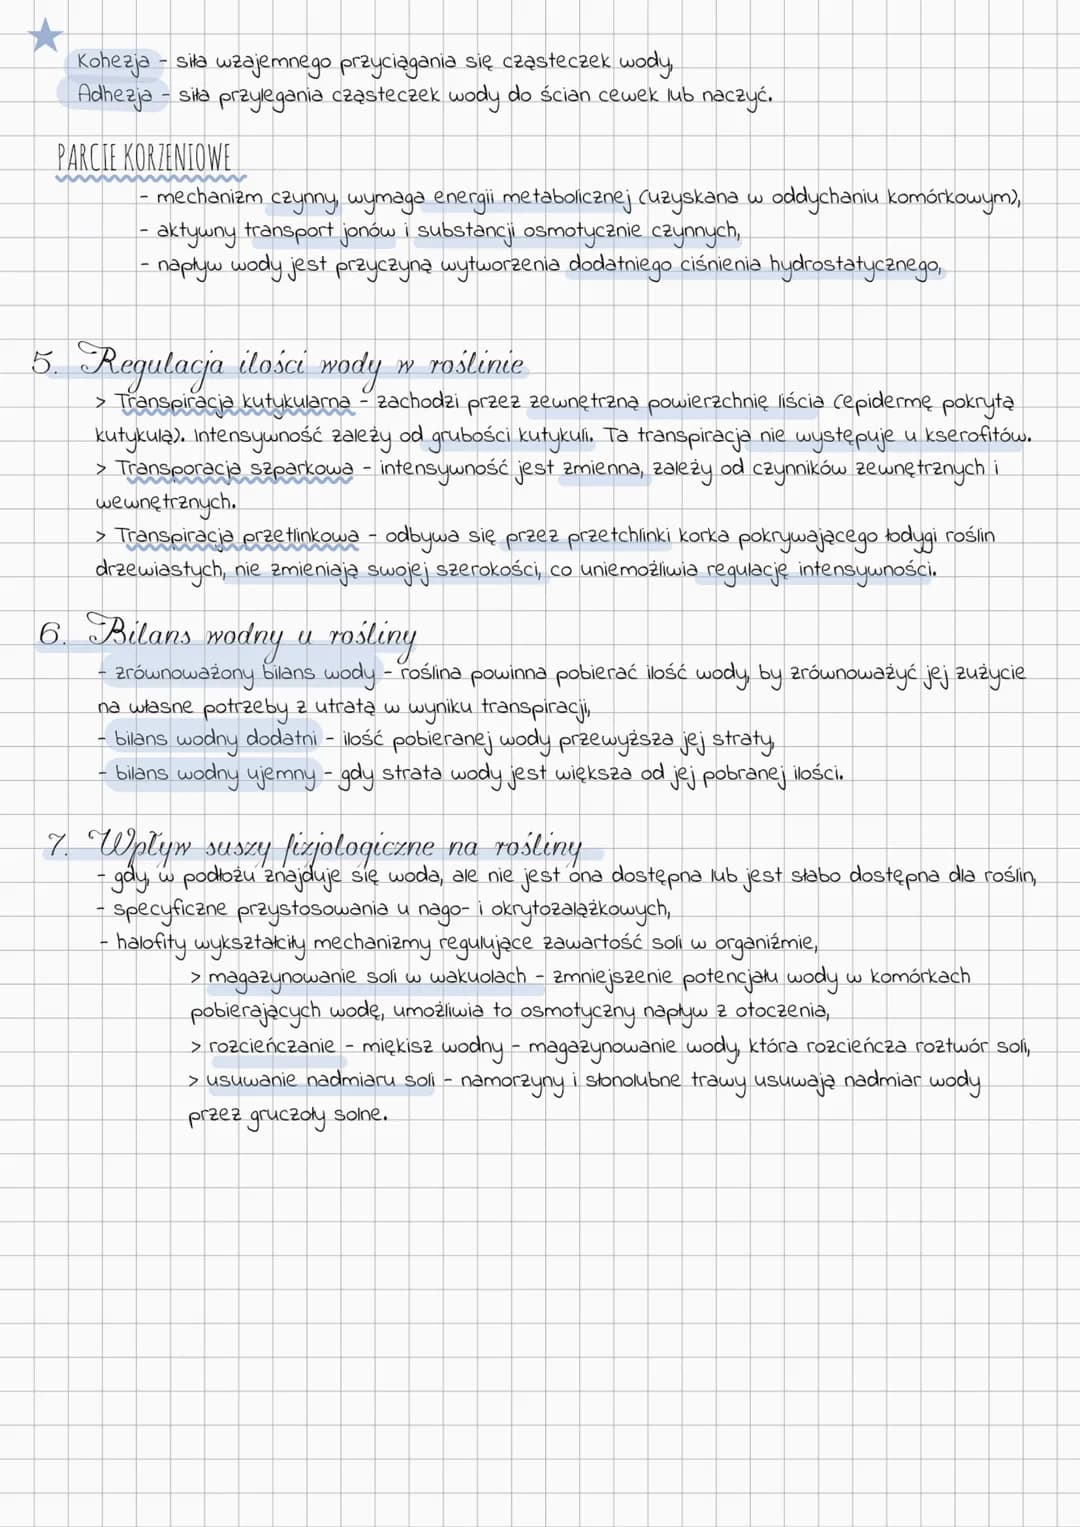 Kohezja - siła wzajemnego przyciągania się cząsteczek wody,
Adhezja - siła przylegania cząsteczek wody do ścian cewek lub naczyć.
PARCIE KORZENIOWE
- mechanizm czynny, wymaga energii metabolicznej (uzyskana w oddychaniu komórkowym),
- aktywny transport jonów i substancji osmotycznie czynnych,
- napływ wody jest przyczyną wytworzenia dodatniego ciśnienia hydrostatycznego,
5. Regulacja ilości wody w roślinie
> Transpiracja kutykularna - zachodzi przez zewnętrzną powierzchnię liścia (epidermę pokrytą
kutykulą). Intensywność zależy od grubości kutykuli. Ta transpiracja nie występuje u kserofitów.
> Transporacja szparkowa - intensywność jest zmienna, zależy od czynników zewnętrznych i
wewnętrznych.
> Transpiracja przetlinkowa - odbywa się przez przetchlinki korka pokrywającego łodygi roślin
drzewiastych, nie zmieniają swojej szerokości, co uniemożliwia regulację intensywności.
6. Bilans wodny u rośliny
- zrównoważony bilans wody - roślina powinna pobierać ilość wody, by zrównoważyć jej zużycie
na własne potrzeby z utratą w wyniku transpiracji,
- bilans wodny dodatni - ilość pobieranej wody przewyższa jej straty,
- bilans wodny ujemny - gdy strata wody jest większa od jej pobranej ilości.
7. Wpływ suszy fizjologiczne na rośliny
- gdy, w podłożu znajduje się woda, ale nie jest ona dostępna lub jest słabo dostępna dla roślin,
- specyficzne przystosowania u nago- i okrytozalążkowych,
- halofity wykształciły mechanizmy regulujące zawartość soli w organiźmie,
> magazynowanie soli w wakuolach - zmniejszenie potencjału wody w komórkach
pobierających wodę, umożliwia to osmotyczny napływ z otoczenia,
> rozcieńczanie - miękisz wodny - magazynowanie wody, która rozcieńcza roztwór soli,
> usuwanie nadmiaru soli - namorzyny i słonolubne trawy usuwają nadmiar wody
przez gruczoły solne.